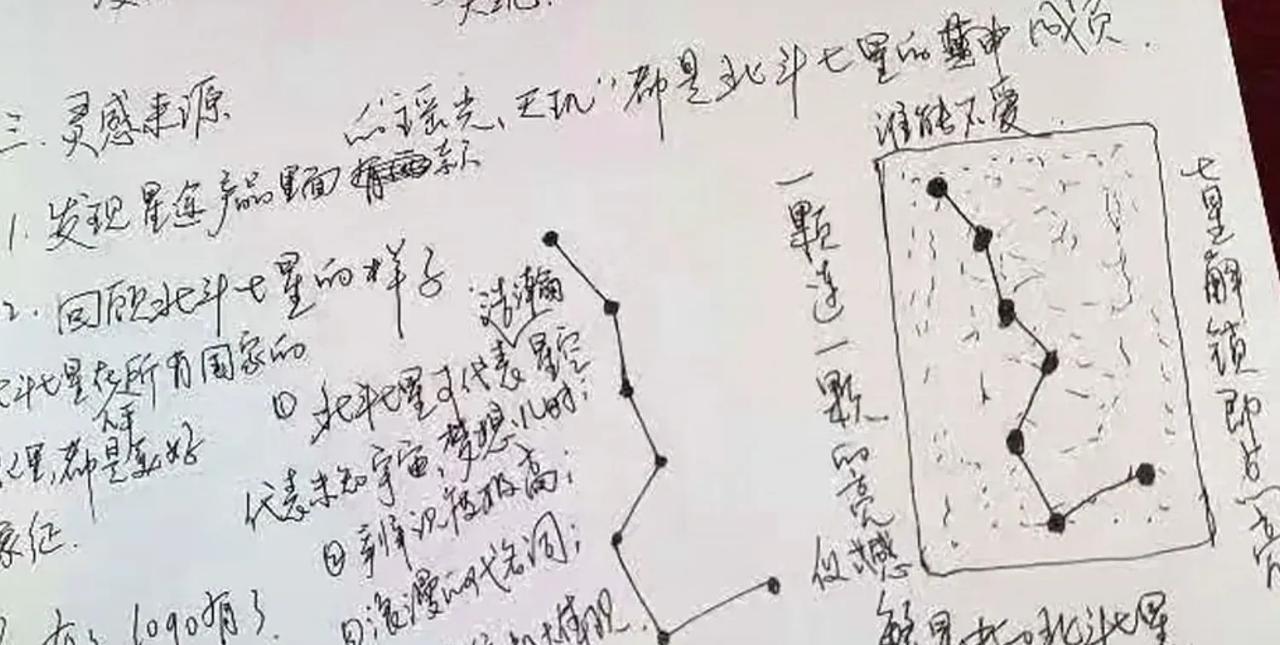 三. 灵感来源
的"瑶光、天玑"都是北斗七星的其中成员.
1. 发现星连产品里面有款
2. 回顾北斗七星的样子
斗七星在所有国家的
里,都是美好
象征.
浩瀚
① 北斗七星才代表星空
代表未知宇宙,梦想,儿时;
② 辨识度极高;
浪漫的代名词;
logo有了
谁能不爱
一颗连一颗的亮
仪式感
七星解锁即点亮
北斗七星